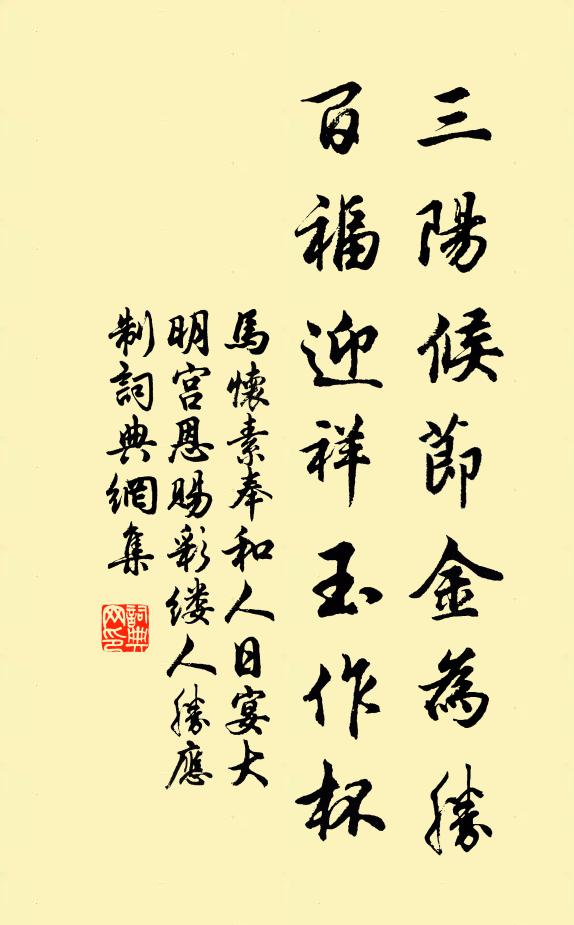 三陽候節金為勝
百福迎祥玉作杯
馬懷素奉和人日宴大
明宮恩賜彩缕人勝應
制詞典網集
詞典
网印